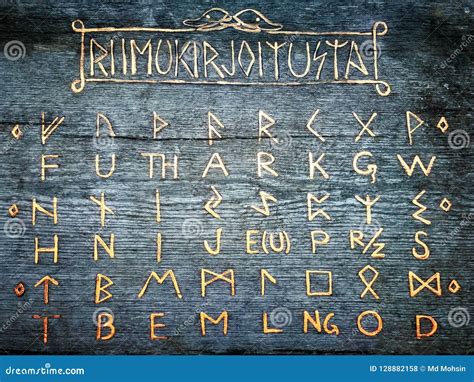 RIIMUKIRJOITUSTA
ᚠ ᚢ ᚦ ᚨ ᚱ ᚲ ᚷ ᚹ
F U TH A R K G W
ᚺ ᚾ ᛁ ᛃ ᛇ ᛈ ᛉ ᛊ
H N I J E(U) P R/Z S
ᛏ ᛒ ᛖ ᛗ ᛚ ᛜ ᛟ ᛞ
T B E M L NG O D
dreamstime.com
ID 128882158 © Md Mohsin